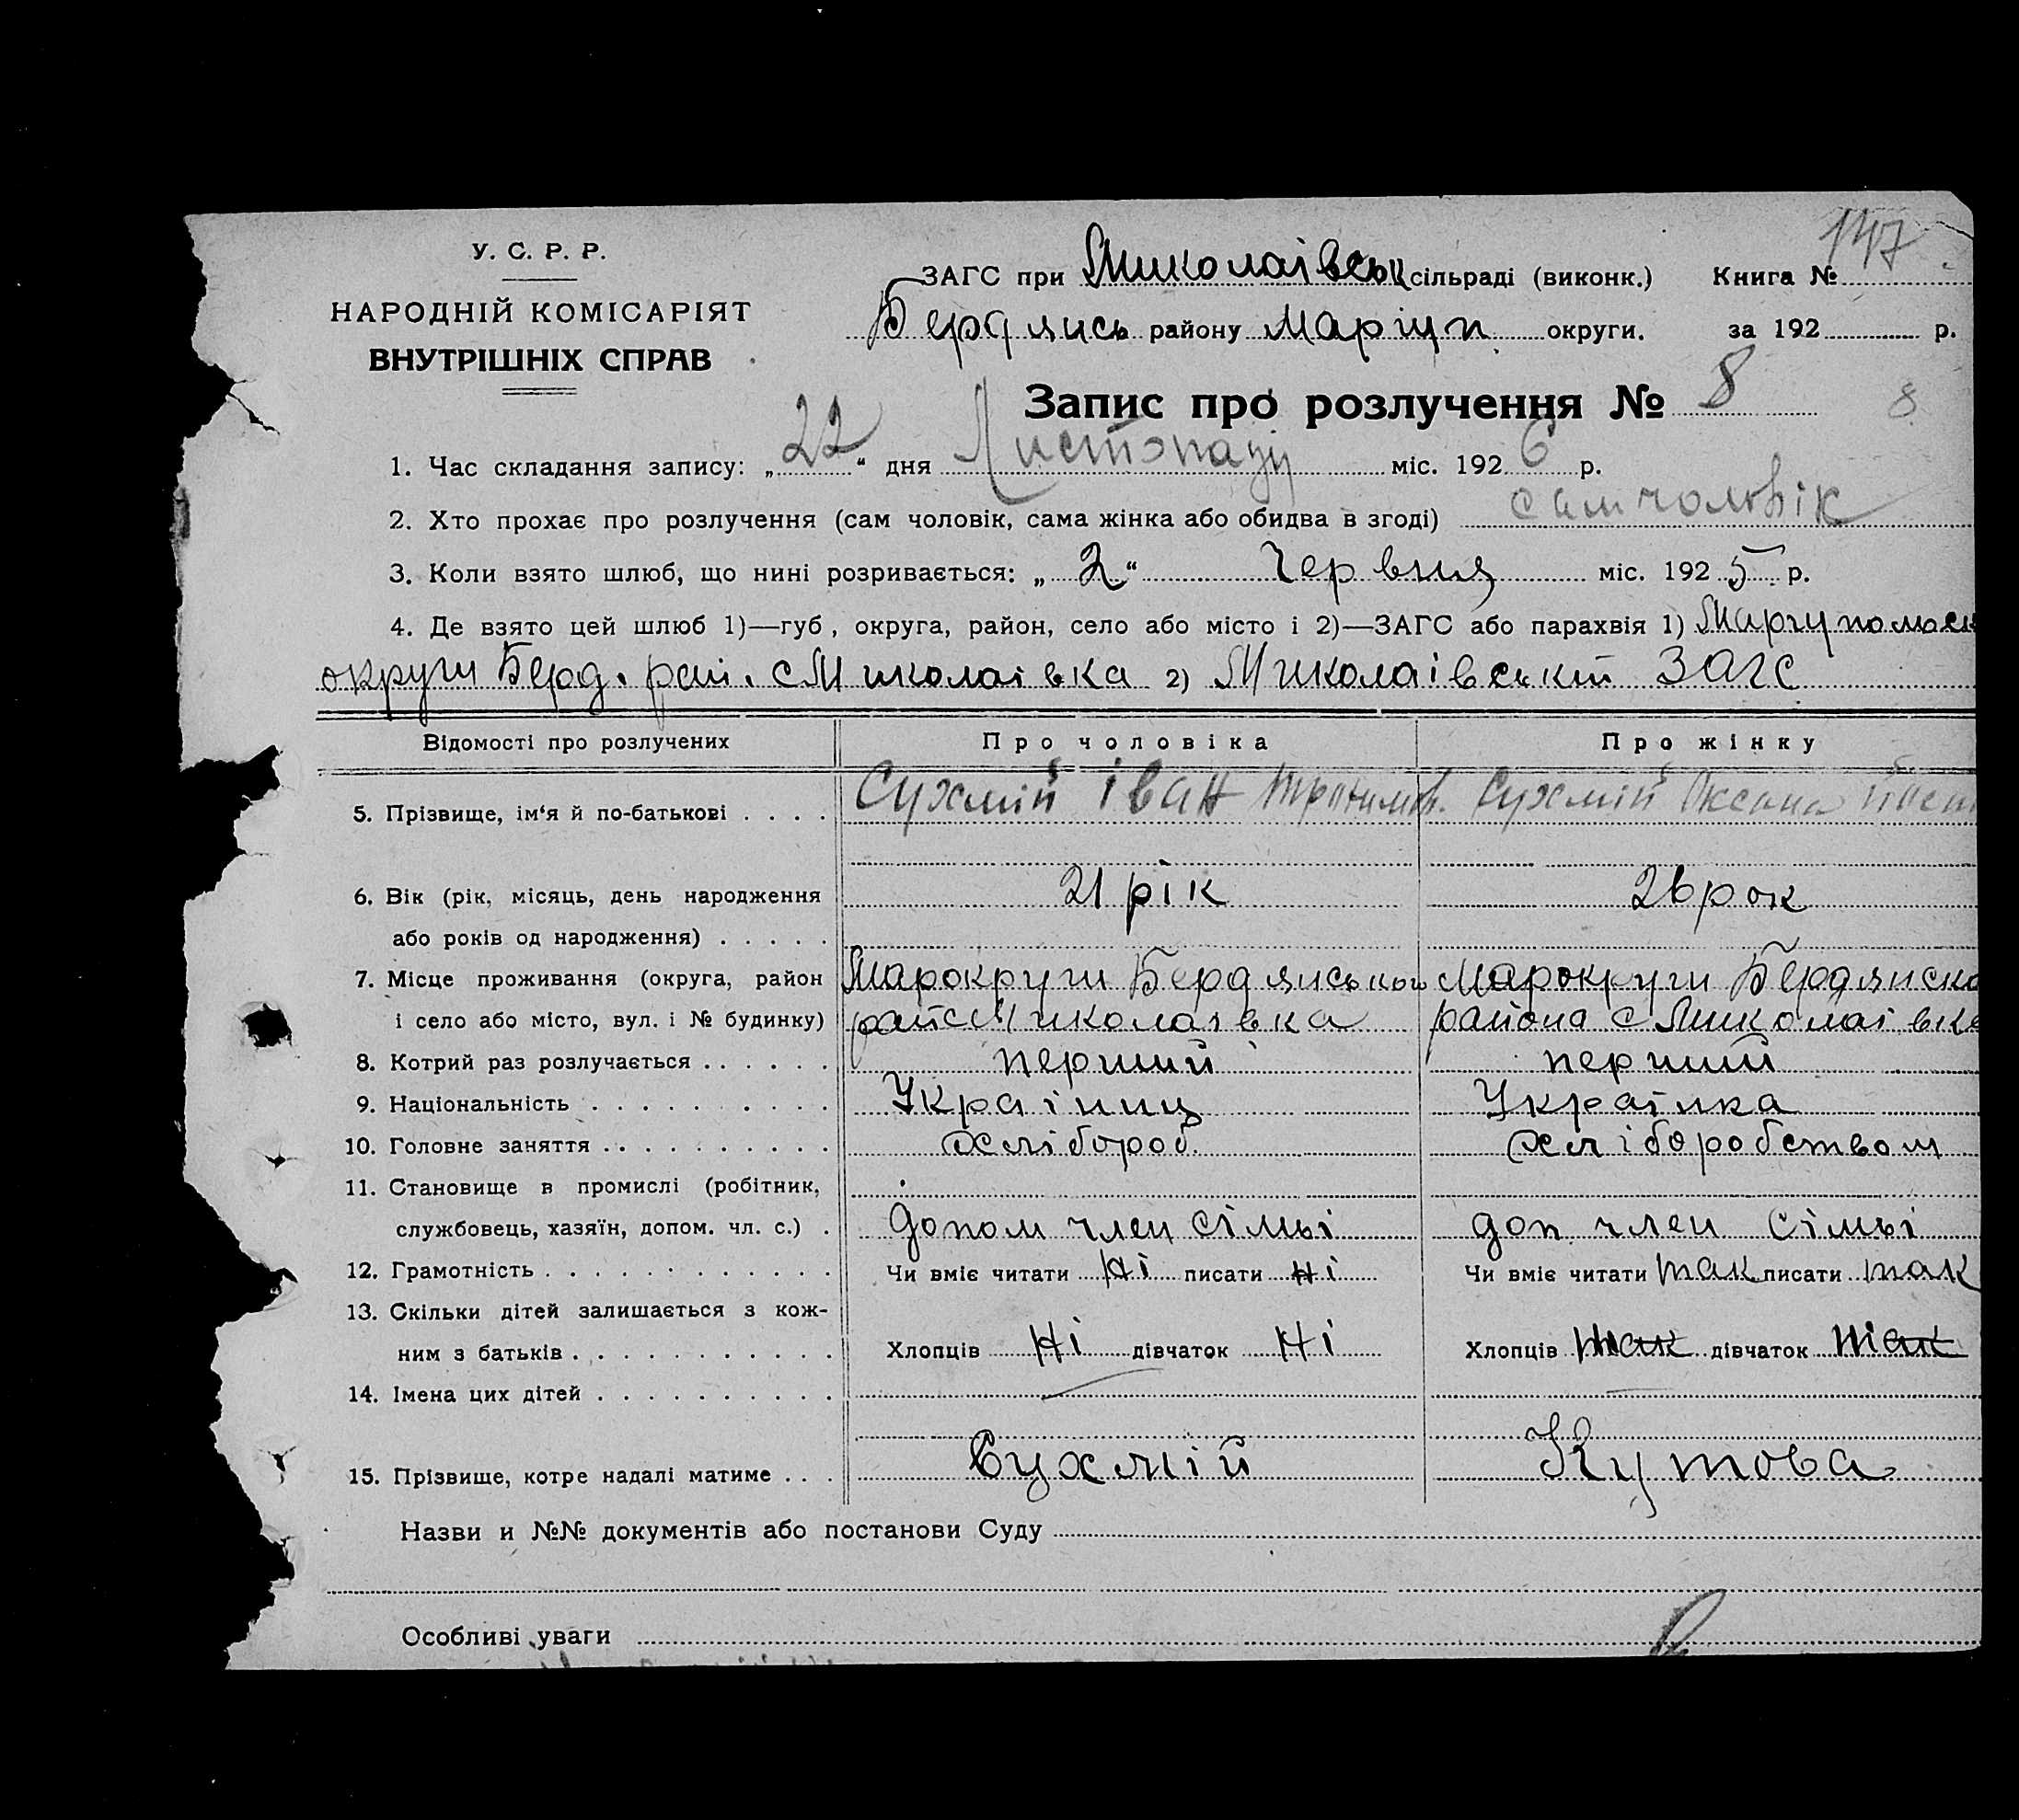 147
У. С. Р. Р.
НАРОДНІЙ КОМІСАРІЯТ
ВНУТРІШНІХ СПРАВ
ЗАГС при Миколаівськ сільраді (виконк.) Книга №
Бердянсь району Маріуп. округи. за 192 р.
Запис про розлучення № 8 8
1. Час складання запису: „22“ дня Листопаду міс. 1926 р.
2. Хто прохає про розлучення (сам чоловік, сама жінка або обидва в згоді) сам чоловік
3. Коли взято шлюб, що нині розривається: „2“ Червня міс. 1925 р.
4. Де взято цей шлюб 1)—губ, округа, район, село або місто і 2)—ЗАГС або парахвія 1)
округи Берд. рай. с Миколаівка 2) Миколаівський ЗАГС
Відомості про розлучених Про чоловіка Про жінку
5. Прізвище, ім‘я й по-батькові . . . . Сухмій Іван Сухмій Оксана
6. Вік (рік, місяць, день народження 21 рік 26 рок
або років од народження) . . . . .
7. Місце проживання (округа, район Марокруги Бердянськои Марокруги Бердянско
і село або місто, вул. і № будинку) рай с Миколаівка района с Миколаівка
8. Котрий раз розлучається . . . . . . перший перший
9. Національність . . . . . . . . . . Украіниц Украінка
10. Головне заняття . . . . . . . . . . хлібороб. хліборобством
11. Становище в промислі (робітник,
службовець, хазяїн, допом. чл. с.) . допом член сімьі доп. член сімьі
12. Грамотність . . . . . . . . . . . . Чи вміє читати Ні писати Ні Чи вміє читати так писати так
13. Скільки дітей залишається з кож-
ним з батьків . . . . . . . . . . . Хлопців Ні дівчаток Ні Хлопців так дівчаток так
14. Імена цих дітей . . . . . . . . . .
15. Прізвище, котре надалі матиме . . . Сухмій Кутова
Назви и №№ документів або постанови Суду
Особливі уваги